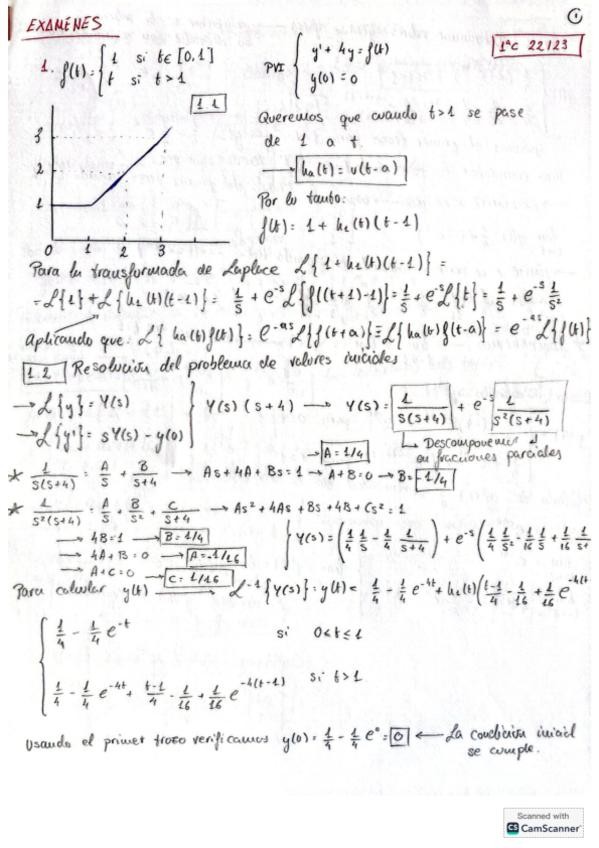 ①
EXÁMENES
1ºC 22/23
1. f(t) = { 1 si t∈[0,1]
t si t>1
PVI { y' + 4y = f(t)
y(0) = 0
1.1
Queremos que cuando t>1 se pase
de 1 a t.
ha(t) = u(t-a)
Por lo tanto:
f(t) = 1 + h₁(t)(t-1)
3
2
1
0 1 2 3
Para la transformada de Laplace ℒ{1+h₁(t)(t-1)} =
= ℒ{1} + ℒ{h₁(t)(t-1)} = 1/s + e^-s ℒ{f((t+1)-1)} = 1/s + e^-s ℒ{t} = 1/s + e^-s 1/s²
Aplicando que: ℒ{ha(t)f(t)} = e^-as ℒ{f(t+a)} = ℒ{ha(t)f(t-a)} = e^-as ℒ{f(t)}
1.2. Resolución del problema de valores iniciales
→ ℒ{y} = Y(s)
→ ℒ{y'} = sY(s) - y(0)
} Y(s)(s+4) → Y(s) = 1/s(s+4) + e^-s 1/s²(s+4)
↳ Descomponemos
en fracciones parciales
* 1/s(s+4) = A/s + B/s+4 → As+4A+Bs=1 → A+B=0 → B=-1/4
A=1/4
* 1/s²(s+4) = A/s + B/s² + C/s+4 → As²+4As+Bs+4B+Cs²=1
→ 4B=1 → B=1/4
→ 4A+B=0 → A=-1/16
→ A+C=0 → C=1/16
{ Y(s) = (1/4 1/s - 1/4 1/s+4) + e^-s (1/4 1/s² - 1/16 1/s + 1/16 1/s
Para calcular y(t) → ℒ^-1{Y(s)} = y(t) = 1/4 - 1/4 e^-4t + h₁(t)(t-1/4 - 1/16 + 1/16 e^-4(t-
{ 1/4 - 1/4 e^-t si 0<t≤1
1/4 - 1/4 e^-4t + t-1/4 - 1/16 + 1/16 e^-4(t-1) si t>1
Usando el primer trozo verificamos y(0) = 1/4 - 1/4 e⁰ = 0 ← La condición inicial
se cumple.
Scanned with
CS CamScanner